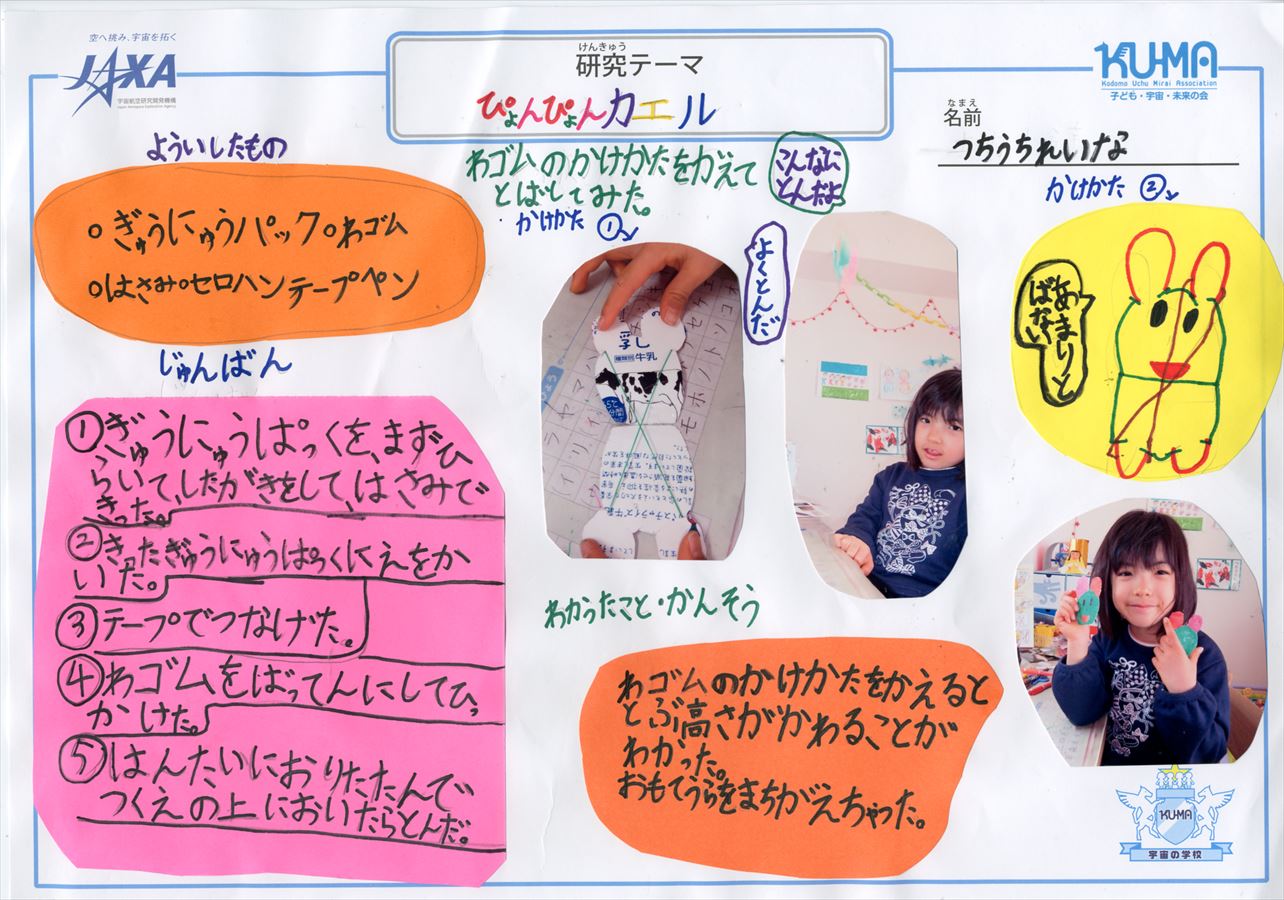 空へ挑み、宇宙を拓く
JAXA
宇宙航空研究開発機構
Japan Aerospace Exploration Agency
けんきゅう
研究テーマ
ぴょんぴょんカエル
KU-MA
Kodomo Uchu Mirai Association
子ども・宇宙・未来の会
なまえ
名前
つちうちれいな
よういしたもの
・ぎゅうにゅうパック・わゴム
・はさみ・セロハンテープペン
じゅんばん
①ぎゅうにゅうぱっくを、まずひ
らいて、したがきをして、はさみで
きった。
②きったぎゅうにゅうぱっくにえをか
いた。
③テープでつなげた。
④わゴムをばってんにしてひっ
かけた。
⑤はんたいにおりたたんで
つくえの上においたらとんだ。
わゴムのかけかたをかえて
とばしてみた。
かけかた ①
こんなに
とんだよ
よくとんだ
乳し
種類別 牛乳
かけかた ②
あまりと
ばない
わかったこと・かんそう
わゴムのかけかたをかえると
とぶ高さがかわることが
わかった。
おもてうらをまちがえちゃった。
KU-MA
宇宙の学校